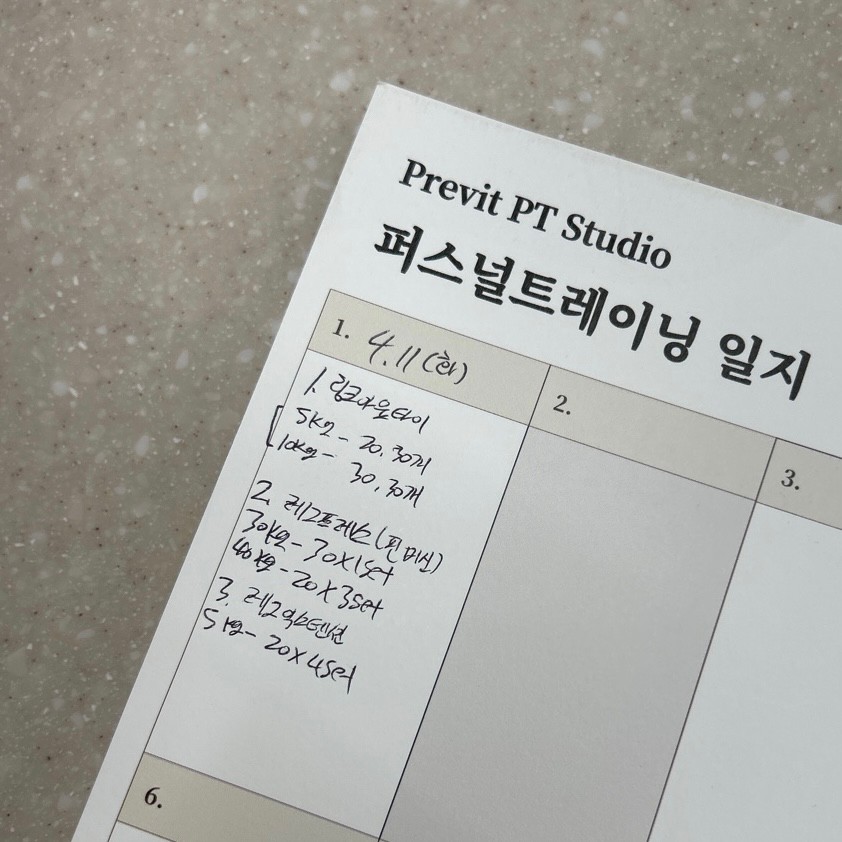 Previt PT Studio
퍼스널트레이닝 일지
1. 4.11 (화)
1. 힙크아웃타이
5kg - 20, 30개
10kg - 30, 30개
2. 레그프레스 (핀머신)
30kg - 30X1set
40kg - 20X3set
3. 레그익스텐션
5kg - 20X4set
2.
3.
6.